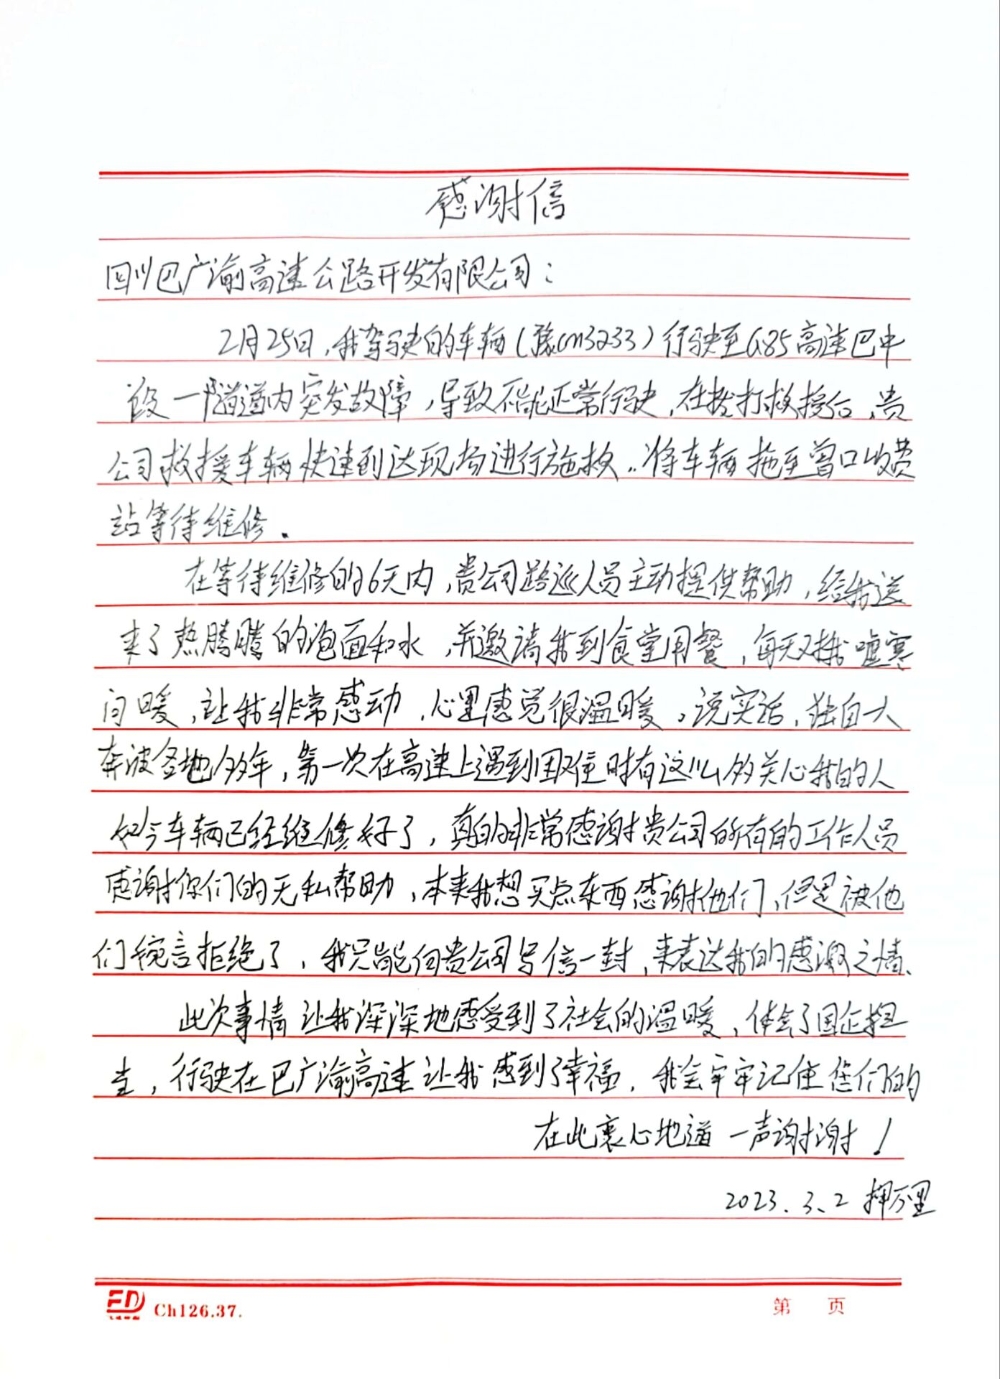 感谢信
四川巴广渝高速公路开发有限公司：
2月25日，我驾驶的车辆（豫CM3233）行驶至G85高速巴中
段一隧道内突发故障，导致不能正常行驶，在拨打救援后，贵
公司救援车辆快速到达现场进行施救，将车辆拖至曾口收费
站等待维修。
在等待维修的6天内，贵公司路巡人员主动提供帮助，给我送
来了热腾腾的泡面和水，并邀请我到食堂用餐，每天对我嘘寒
问暖，让我非常感动，心里感觉很温暖。说实话，独自一人
奔波各地多年，第一次在高速上遇到困难时有这么多关心我的人
如今车辆已经维修好了，真的非常感谢贵公司所有的工作人员
感谢你们的无私帮助，本来我想买点东西感谢他们，但是被他
们婉言拒绝了，我只能向贵公司写信一封，来表达我的感激之情、
此次事情让我深深地感受到了社会的温暖，体会了国企担
当，行驶在巴广渝高速让我感到了幸福，我会牢牢记住您们的
在此衷心地道一声谢谢！
2023.3.2 万里
ED
Ch126.37.
第 页